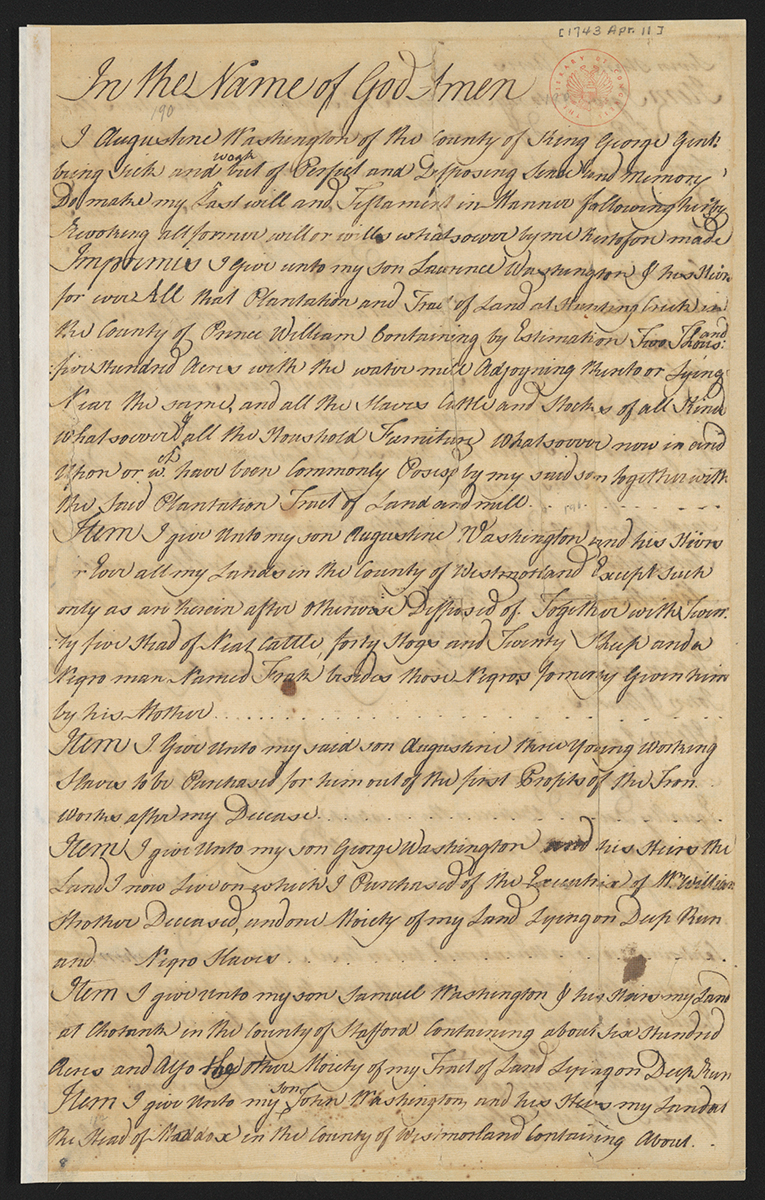 [1743 Apr. 11]
In the Name of God Amen
190
I Augustine Washington of the County of King George Gent:
being Sick and weak but of Perfect and Disposing Sence and Memory
Do make my Last will and Testament in Manner following hereby
Revoking all former will or wills whatsoever by me heretofore made
Imprimis I give unto my son Lawrence Washington & his Heirs
for ever All that Plantation and Tract of Land at Hunting Creek in
the County of Prince William Containing by Estimation Two Thousand
five Hundred Acres with the water mill Adjoyning thereto or Lying
Near the same, and all the Slaves Cattle and Stocks of all Kinds
whatsoever & all the Houshold Furniture Whatsoever now in and
Upon or wch have been Commonly Possesd by my said son together with
the said Plantation Tract of Land and mill
Item I give Unto my son Augustine Washington and his Heirs
r Ever all my Lands in the County of Westmorland Except Such
only as are herein after otherwise Disposed of Together with Twen
ty five Head of Neat Cattle, forty Hogs and Twenty Sheep and a
Negro man Named Frank besides those Negros formerly Given him
by his Mother
Item I Give Unto my said son Augustine three Young Working
Slaves to be Purchased for him out of the first Profits of the Iron
Works after my Decease
Item I give Unto my son George Washington and his Heirs the
Land I now Live on which I Purchased of the Executrix of Mr William
Strother Deceased, and one Moiety of my Land Lying on Deep Run
and Negro Slaves
Item I give Unto my son Samuel Washington & his Heirs my Land
at Chotank in the County of Stafford Containing about Six Hundred
Acres and Also the other Moiety of my Tract of Land Lying on Deep Run
Item I give Unto my son John Washington, and his Heirs my Land at
the Head of Maddox in the County of Westmorland Containing About
8